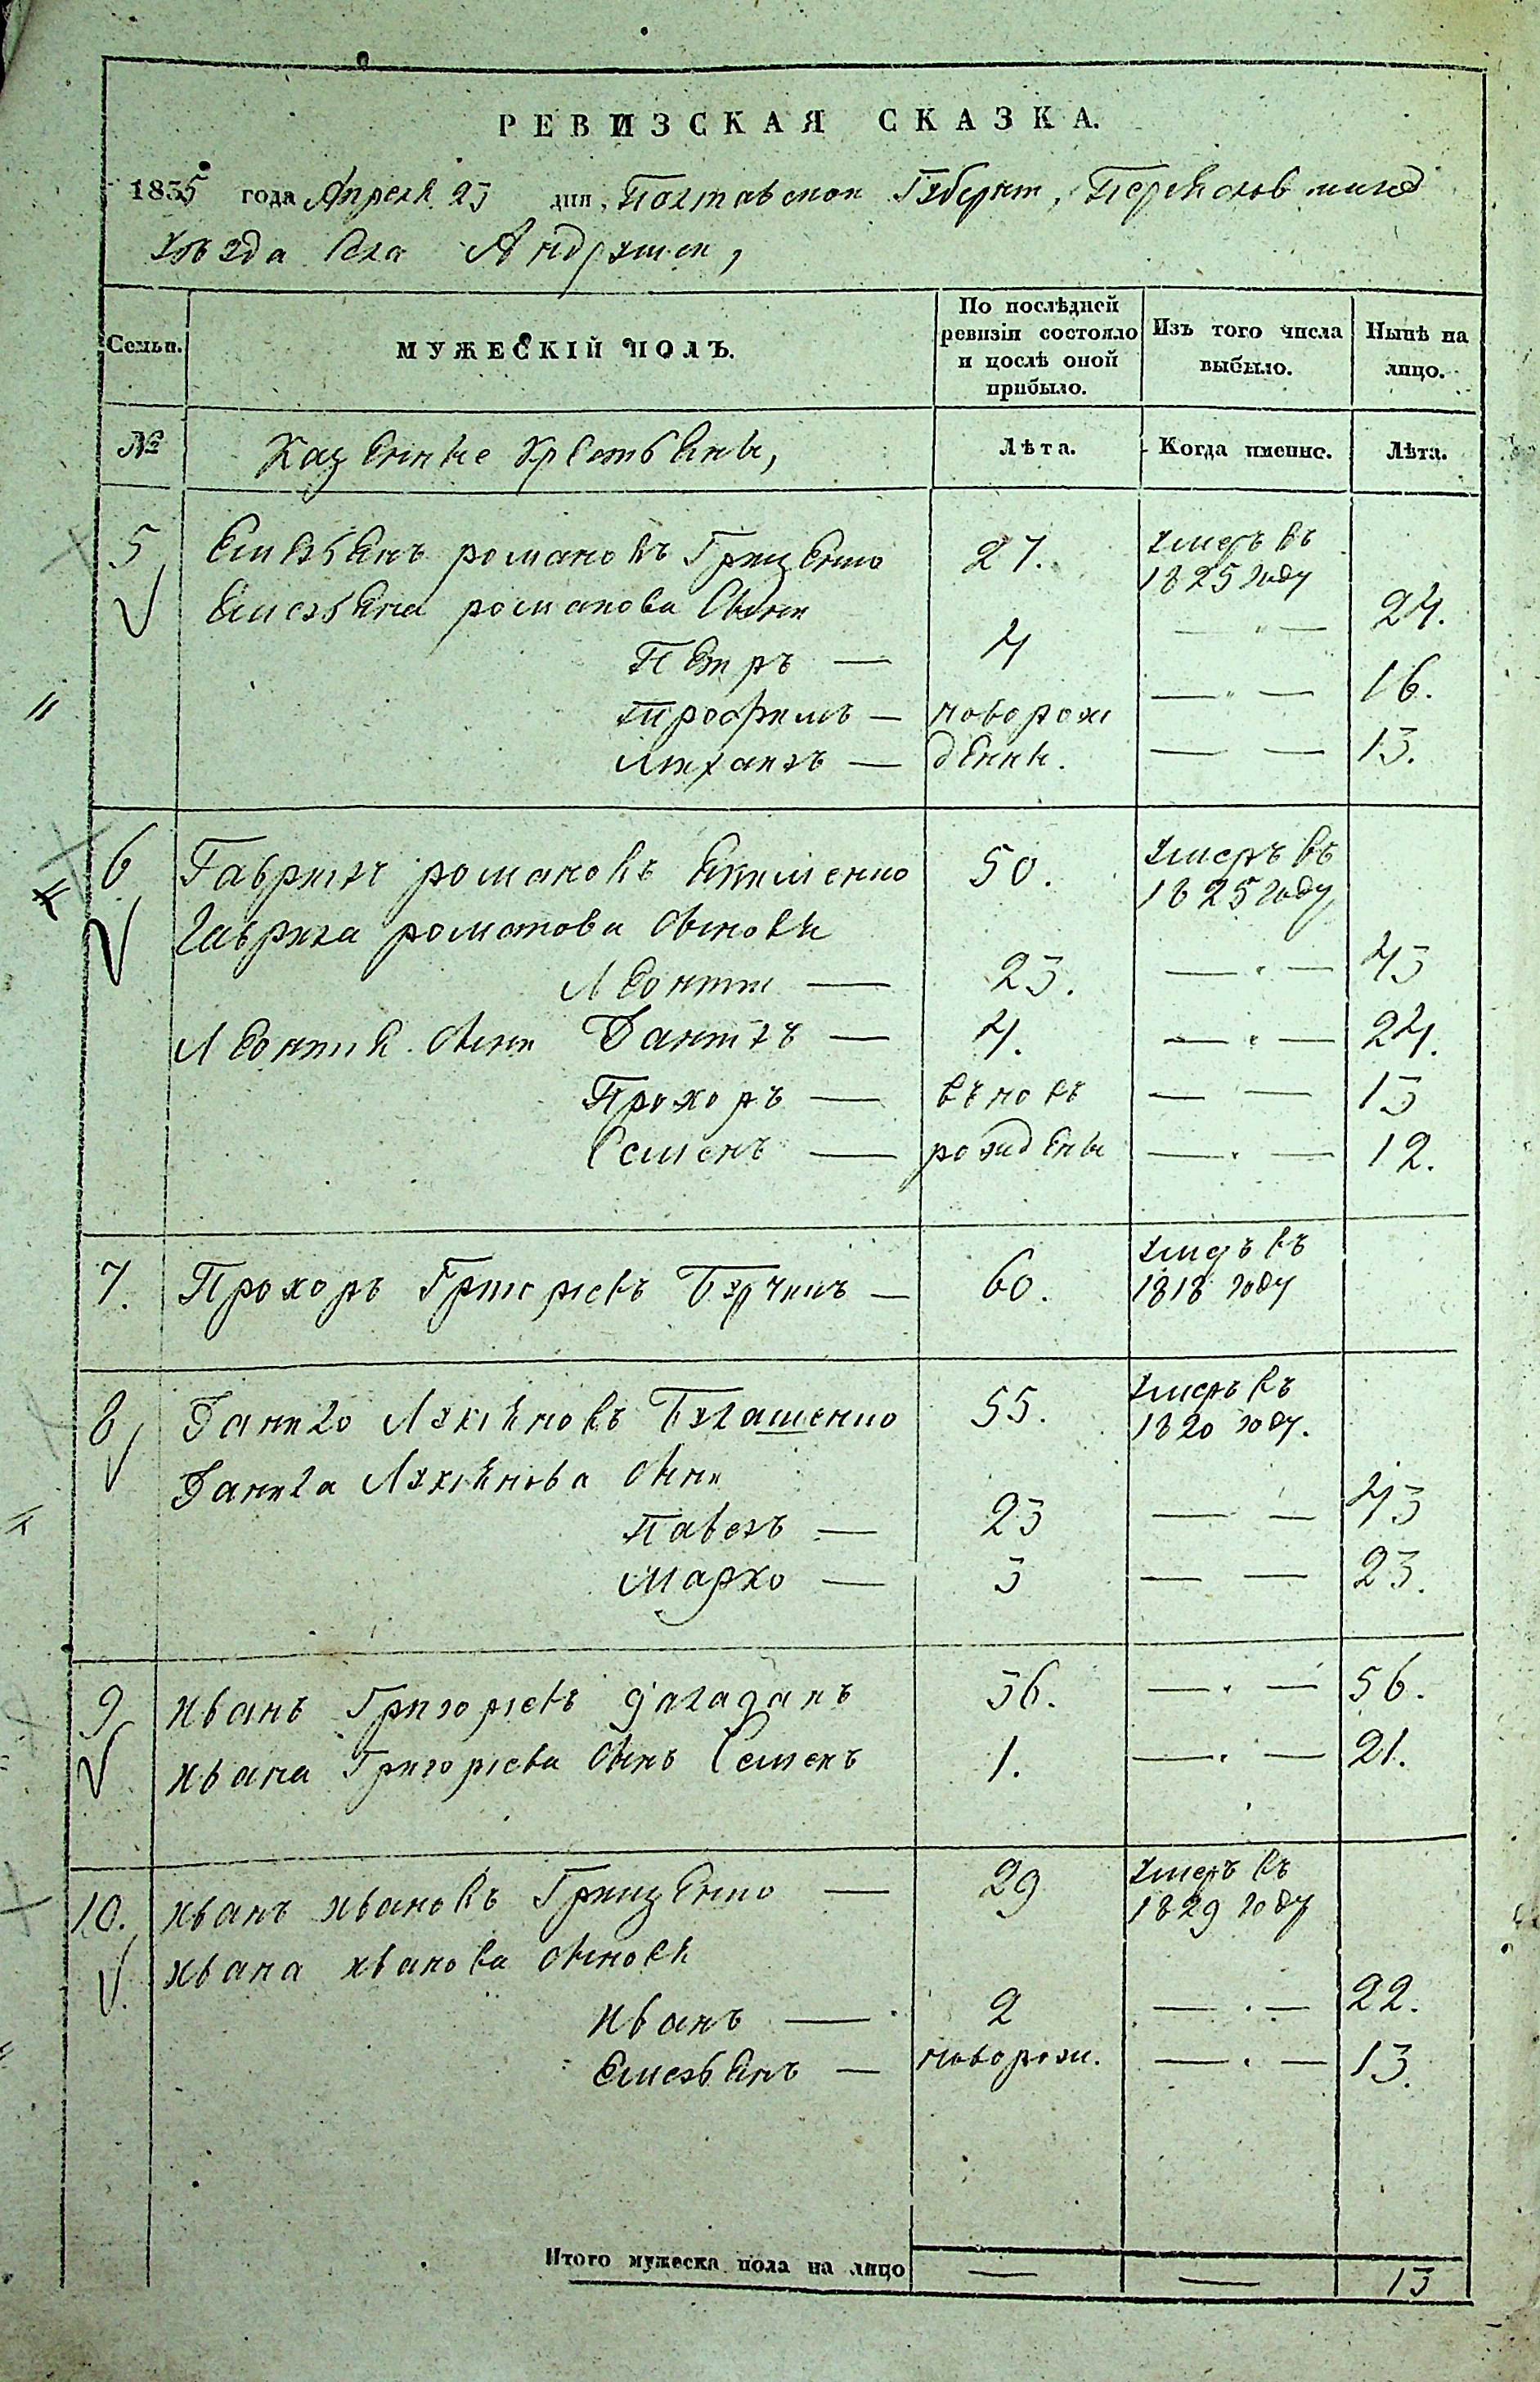 РЕВИЗСКАЯ СКАЗКА.
1835 года Апреля 23 дня, Полтавской Губернии, Переяславскаго
Уѣзда Села Андрушек,
Семьи. МУЖЕСКІЙ ПОЛЪ. По послѣдней ревизіи состояло и послѣ оной прибыло. Изъ того числа выбыло. Нынѣ на лицо.
№ Казенные Крестьяны, Лѣта. Когда именно. Лѣта.
5 Емельянъ романовъ Гриценко 27. умеръ въ 1825 году
Емельяна романова Сыны
Петръ — 4 — " — 24.
Трофимъ — новорож — " — 16.
Михаилъ — денны. — — 13.
6 Гаврилъ романовъ Якименко 50. умеръ въ 1825 году
Гаврила романова Сыновя
Леонтий — 23. — " — 43
Леонтия Сыны Данилъ — 4. — " — 24.
Прохоръ — вновъ — — 13
Семенъ — рождены — " — 12.
7. Прохоръ Григориевъ — 60. умеръ въ 1818 году
8 Данило Лукяновъ Булашенко 55. умеръ въ 1820 году.
Данила Лукянова Сыны
Павелъ — 23 — — 43
Марко — 3 — — 23.
9 Иванъ Григориевъ 36. — " — 56.
Ивана Григориева Сынъ Семенъ 1. — " — 21.
10. Иванъ Ивановъ Гриценко — 29 умеръ въ 1829 году
Ивана Иванова Сыновя
Иванъ — 2 — " — 22.
Емельянъ — новорож. — " — 13.
Итого мужеска пола на лицо — — 13